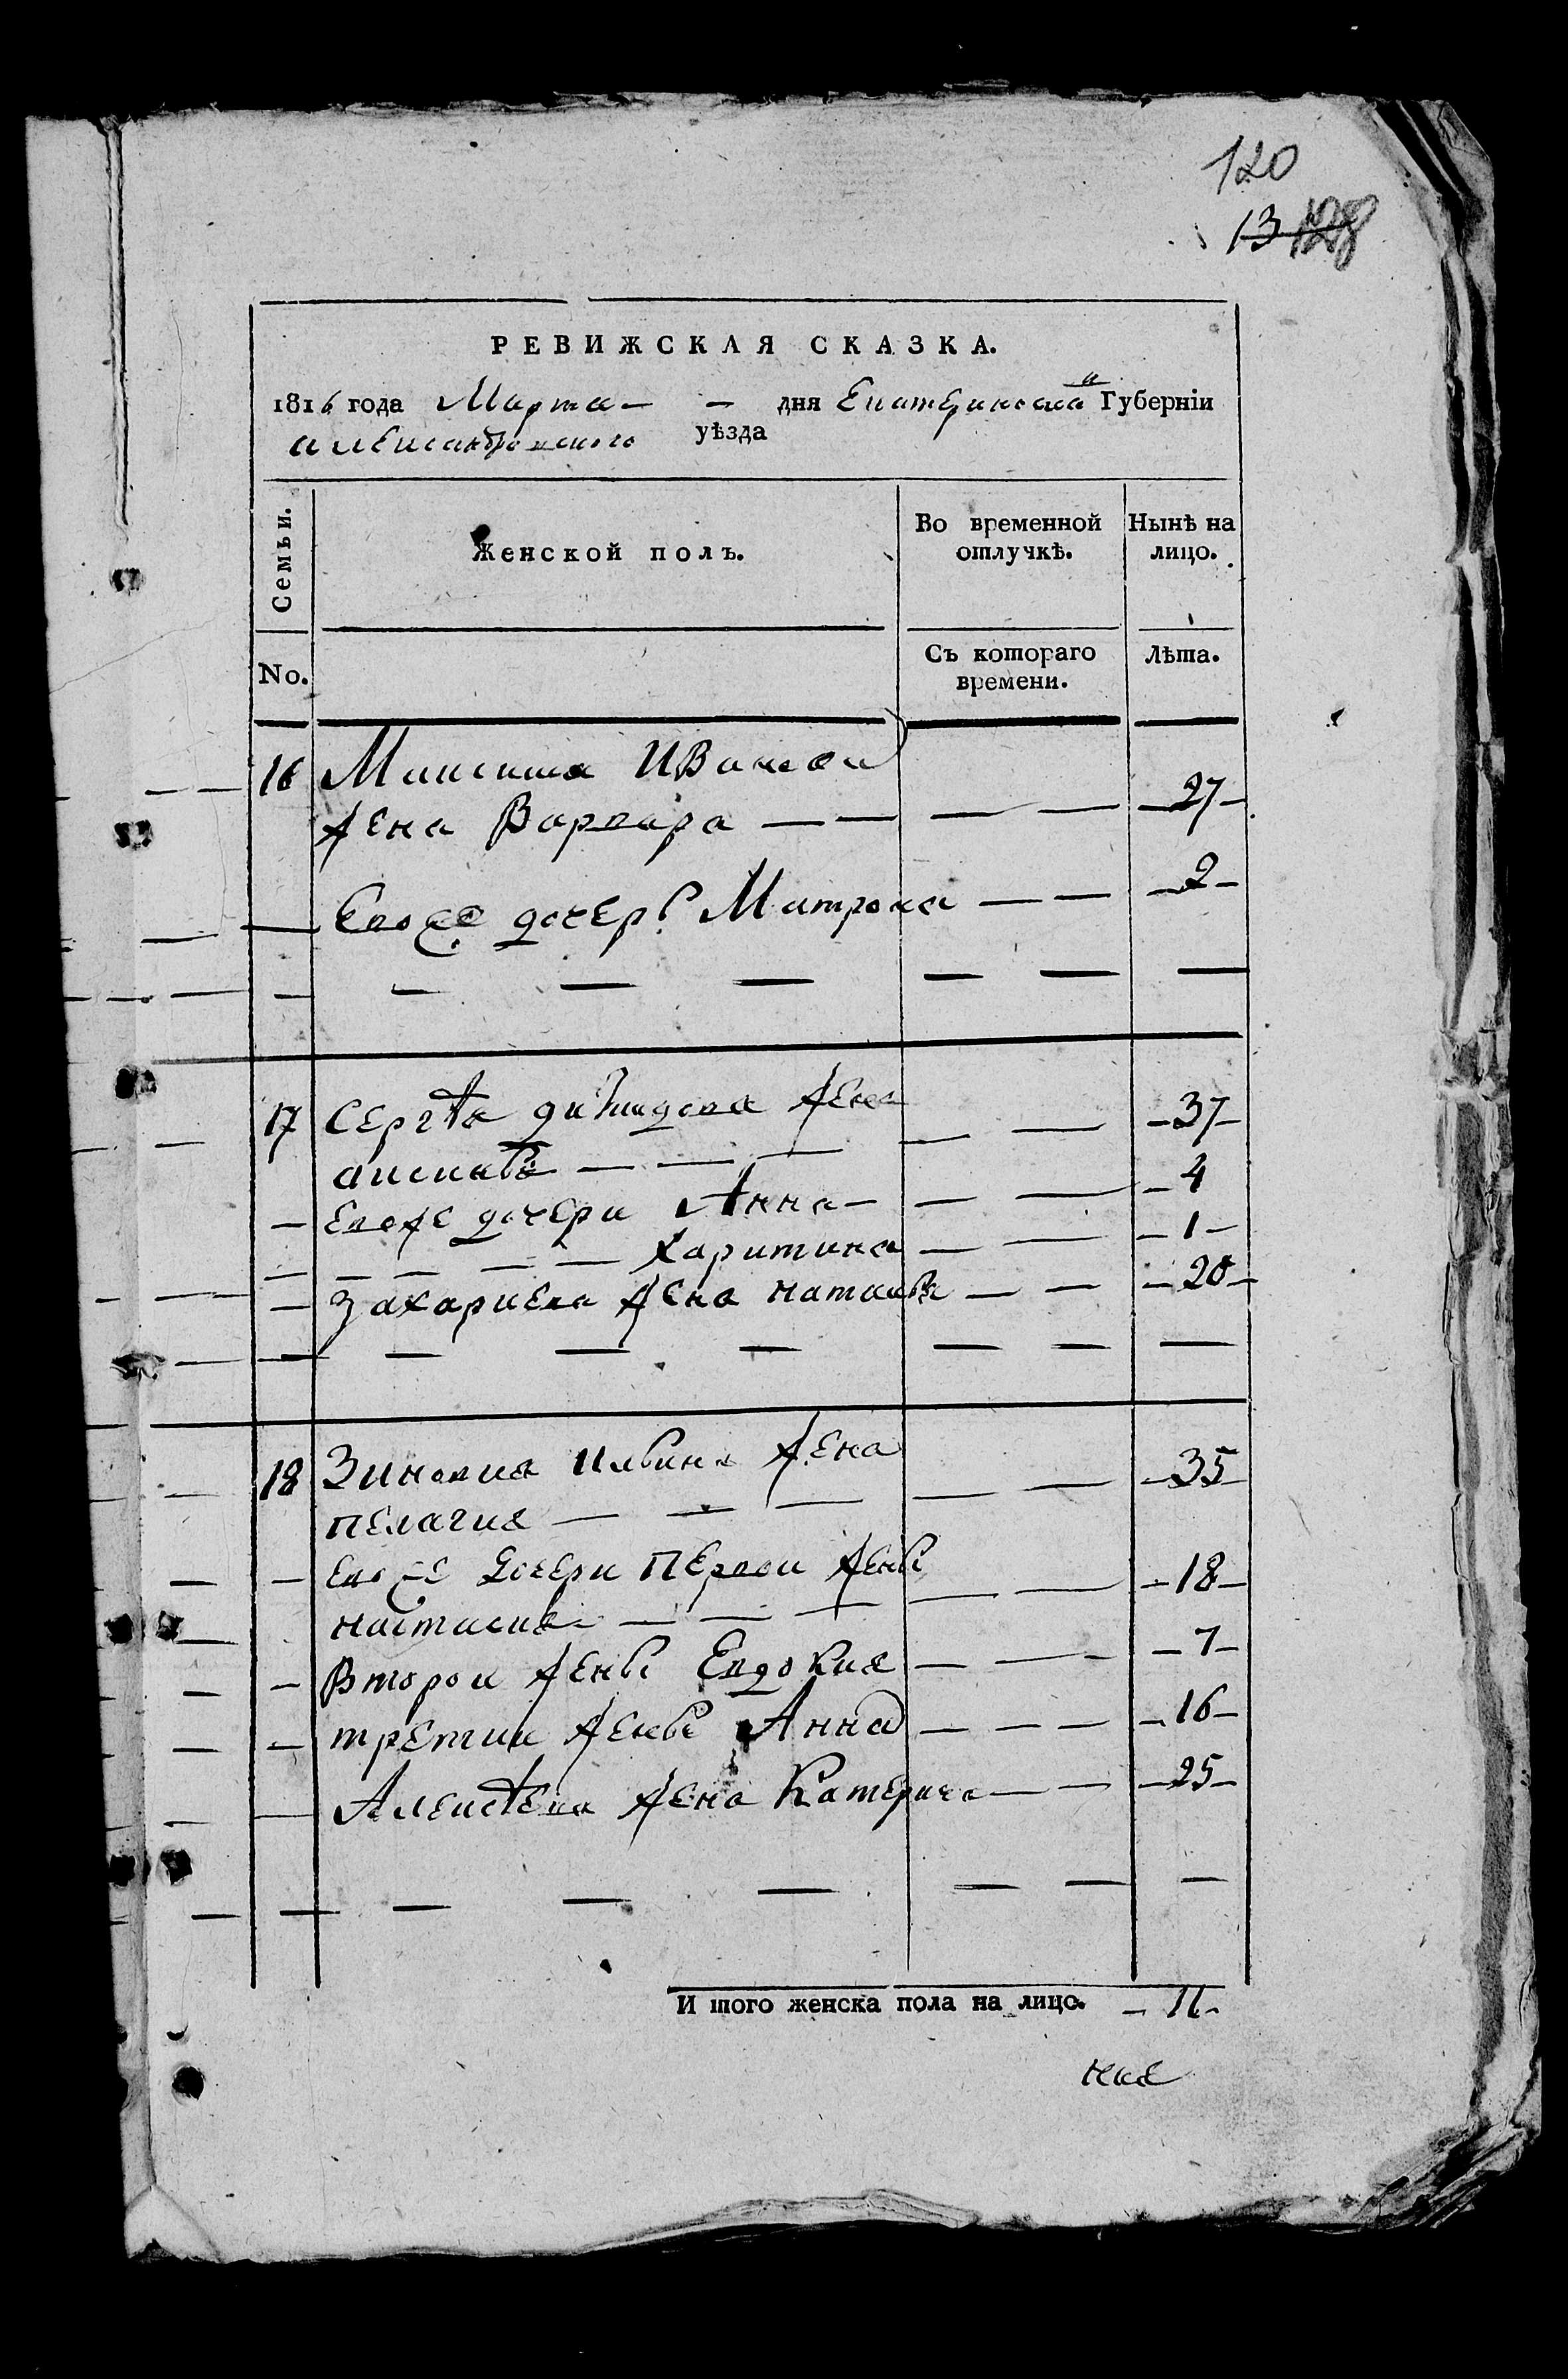 120
13 128
РЕВИЖСКАЯ СКАЗКА.
1816 года Марта — — дня Екатериносла Губерніи
александровского уѣзда
Семьи. Женской полъ. Во временной отлучкѣ. Нынѣ на лицо.
No. Съ котораго времени. Лѣта.
16 Максима Иванова
жена Варвара — — — — —27—
Евоже дочерь Матрона — — —2—
17 Сергѣя давидова жена — — —37—
аксинья — — —
— Евоже дочери Анна — — — —4
— — — — — Харитина — — —1—
— Захариева жена наталья — — —20—
18 Зиновия ильина жена — — —35—
пелагия — — —
— Евоже дочери первои жены — — —18—
настасия — — —
— второи жены Евдокия — — —7—
— третии жены Анна — — — —16—
— Алексѣева жена Катерина — — —25—
И того женска пола на лицо. — 11 —